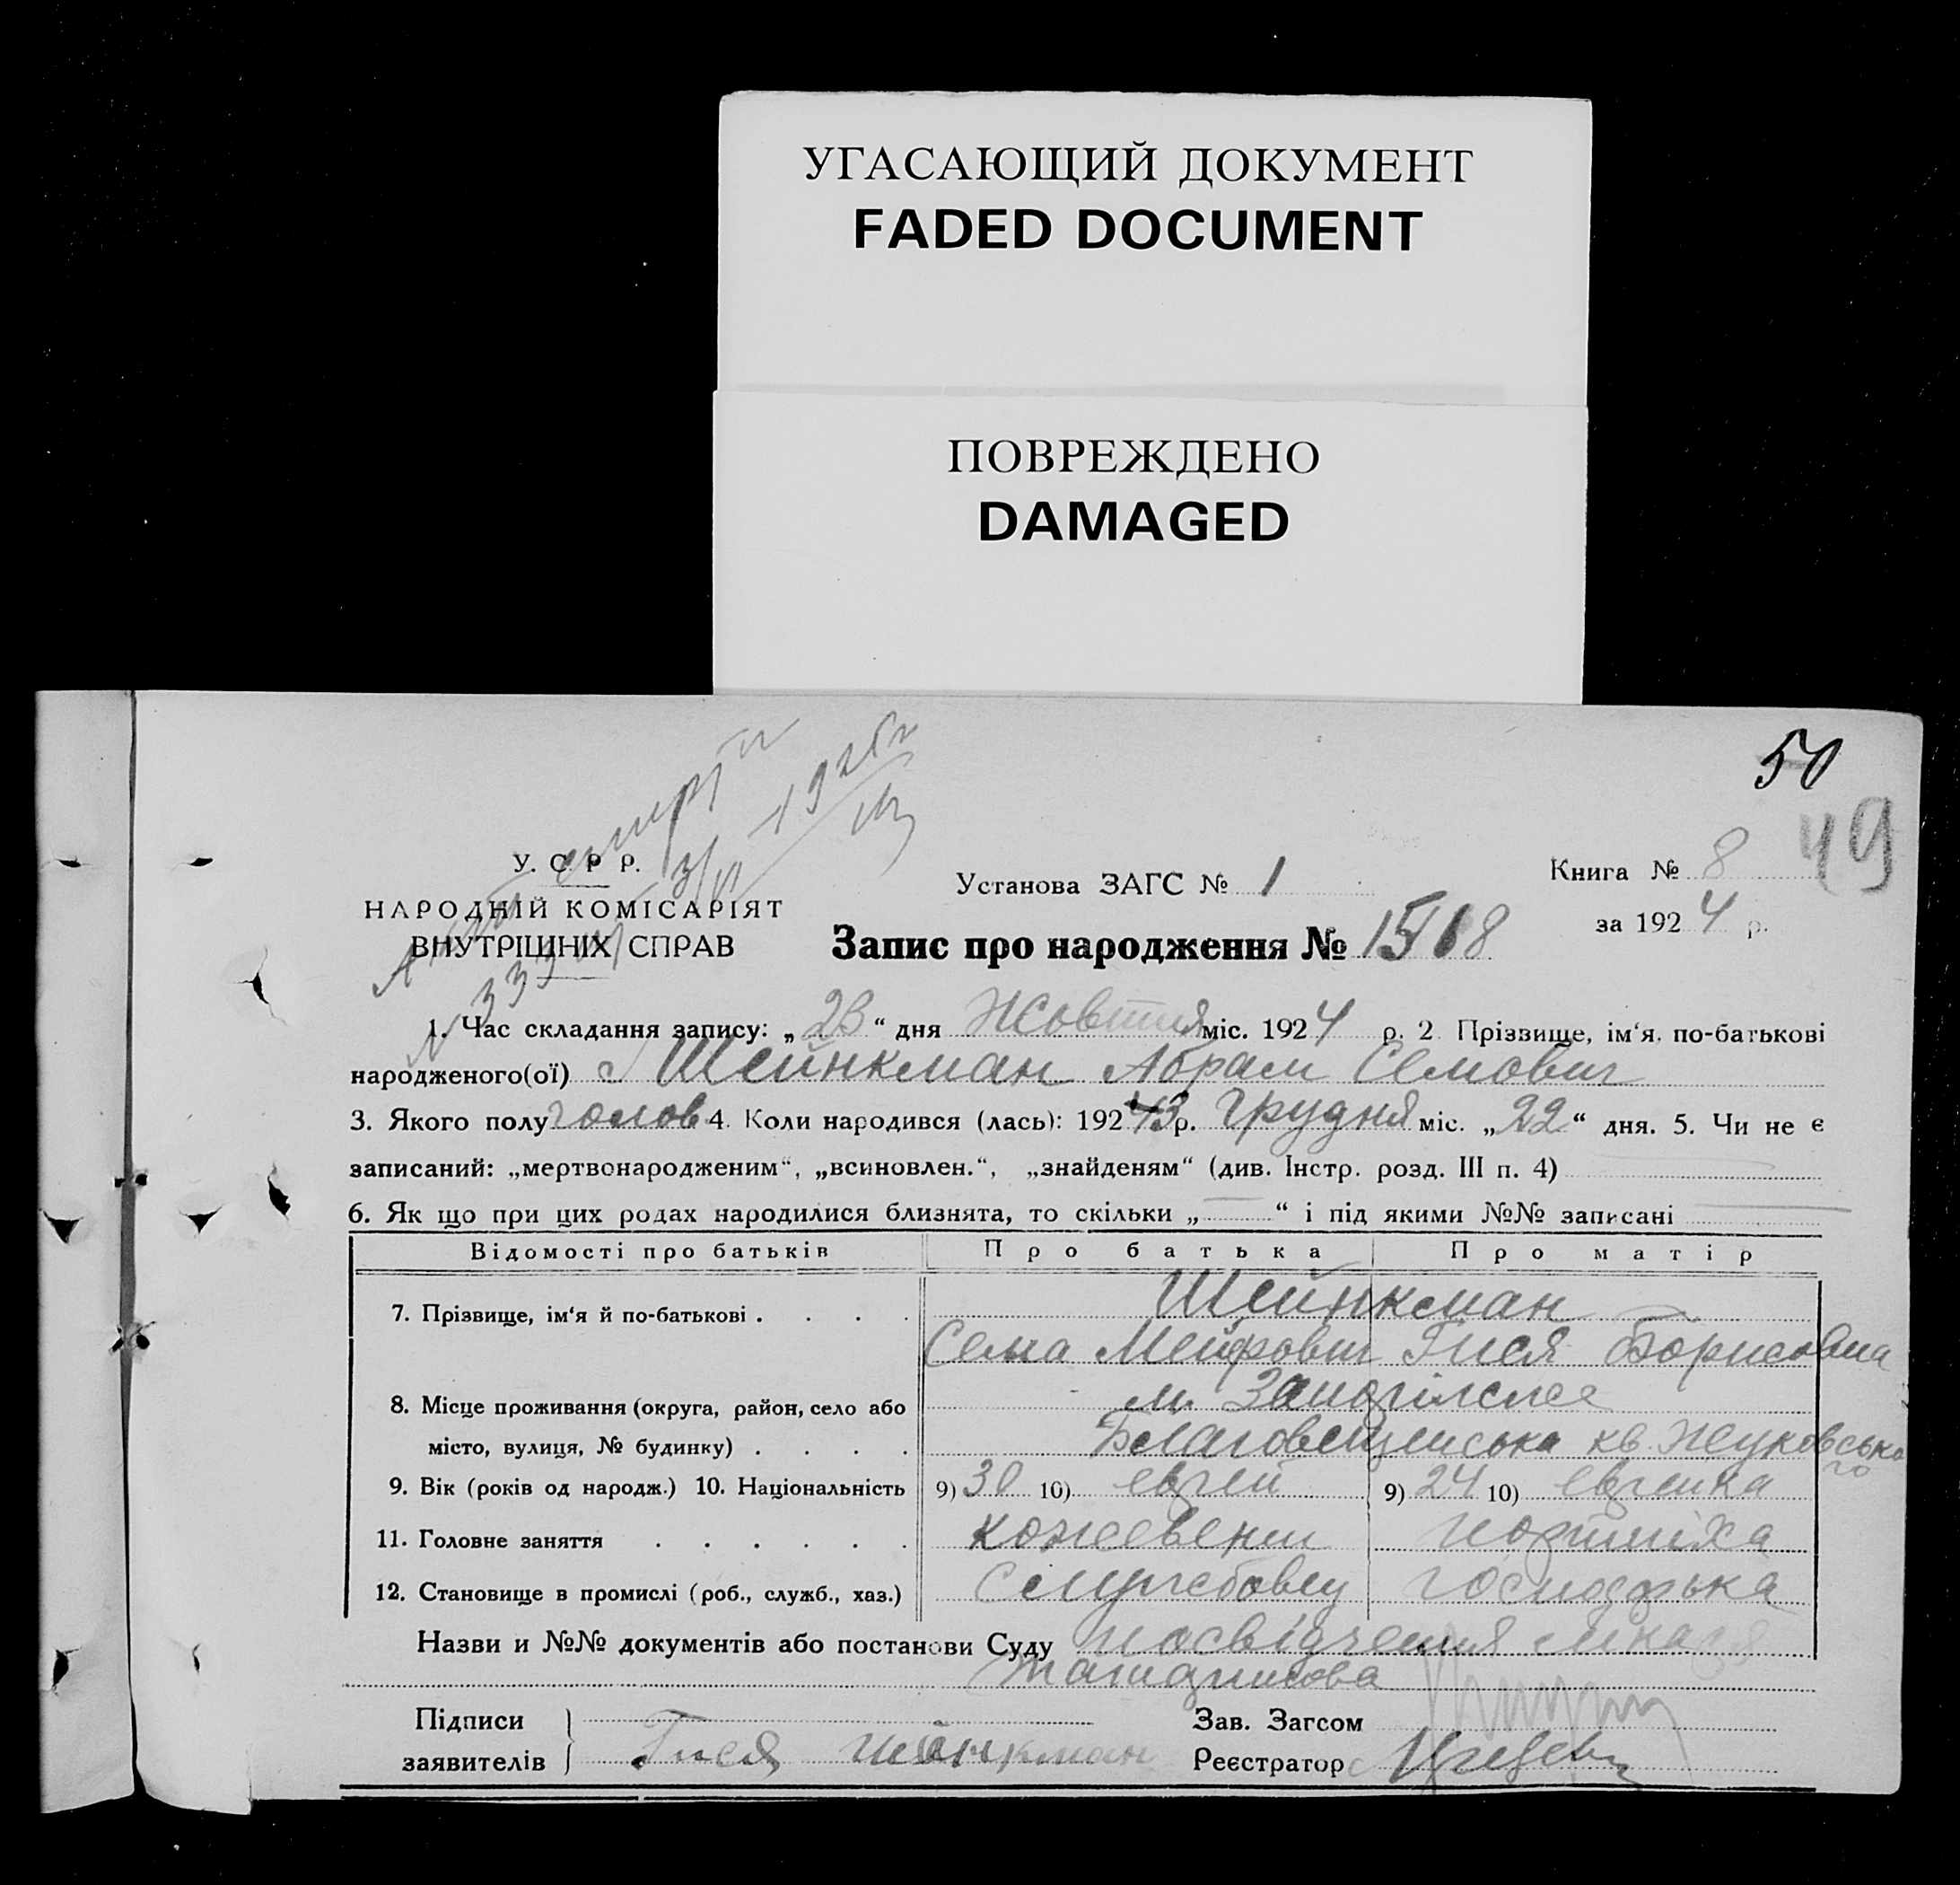 УГАСАЮЩИЙ ДОКУМЕНТ
FADED DOCUMENT
ПОВРЕЖДЕНО
DAMAGED
50
49
У. С. Р Р.
НАРОДНІЙ КОМІСАРІЯТ
ВНУТРІШНІХ СПРАВ
Установа ЗАГС № 1
Книга № 8
за 1924 р.
Запис про народження № 1518
1. Час складання запису: „23“ дня Жовтня міс. 1924 р. 2 Прізвище, ім‘я, по-батькові
народженого(ої) Шейнкман Абрам Семович
3. Якого полу голов 4. Коли народився (лась): 1923 р. Грудня міс. „22“ дня. 5. Чи не є
записаний: „мертвонародженим“, „всиновлен.“, „знайденям“ (див. Інстр. розд. III п. 4)
6. Як що при цих родах народилися близнята, то скільки „—“ і під якими №№ записані —
Відомості про батьків Про батька Про матір
7. Прізвище, ім‘я й по-батькові . . . . Шейнкман
Сема Мейфович Гися Борисовна
8. Місце проживання (округа, район, село або м.
місто, вулиця, № будинку) . . . . Благовещенська кв. Жуковсько
го
9. Вік (років од народж.) 10. Національність 9) 30 10) еврей 9) 24 10) еврейка
11. Головне заняття . . . . . . кожевени
12. Становище в промислі (роб., служб., хаз.) Служебовец господарька
Назви и №№ документів або постанови Суду посвідчення
Підписи
заявителів Гися Шейнкман
Зав. Загсом
Реєстратор